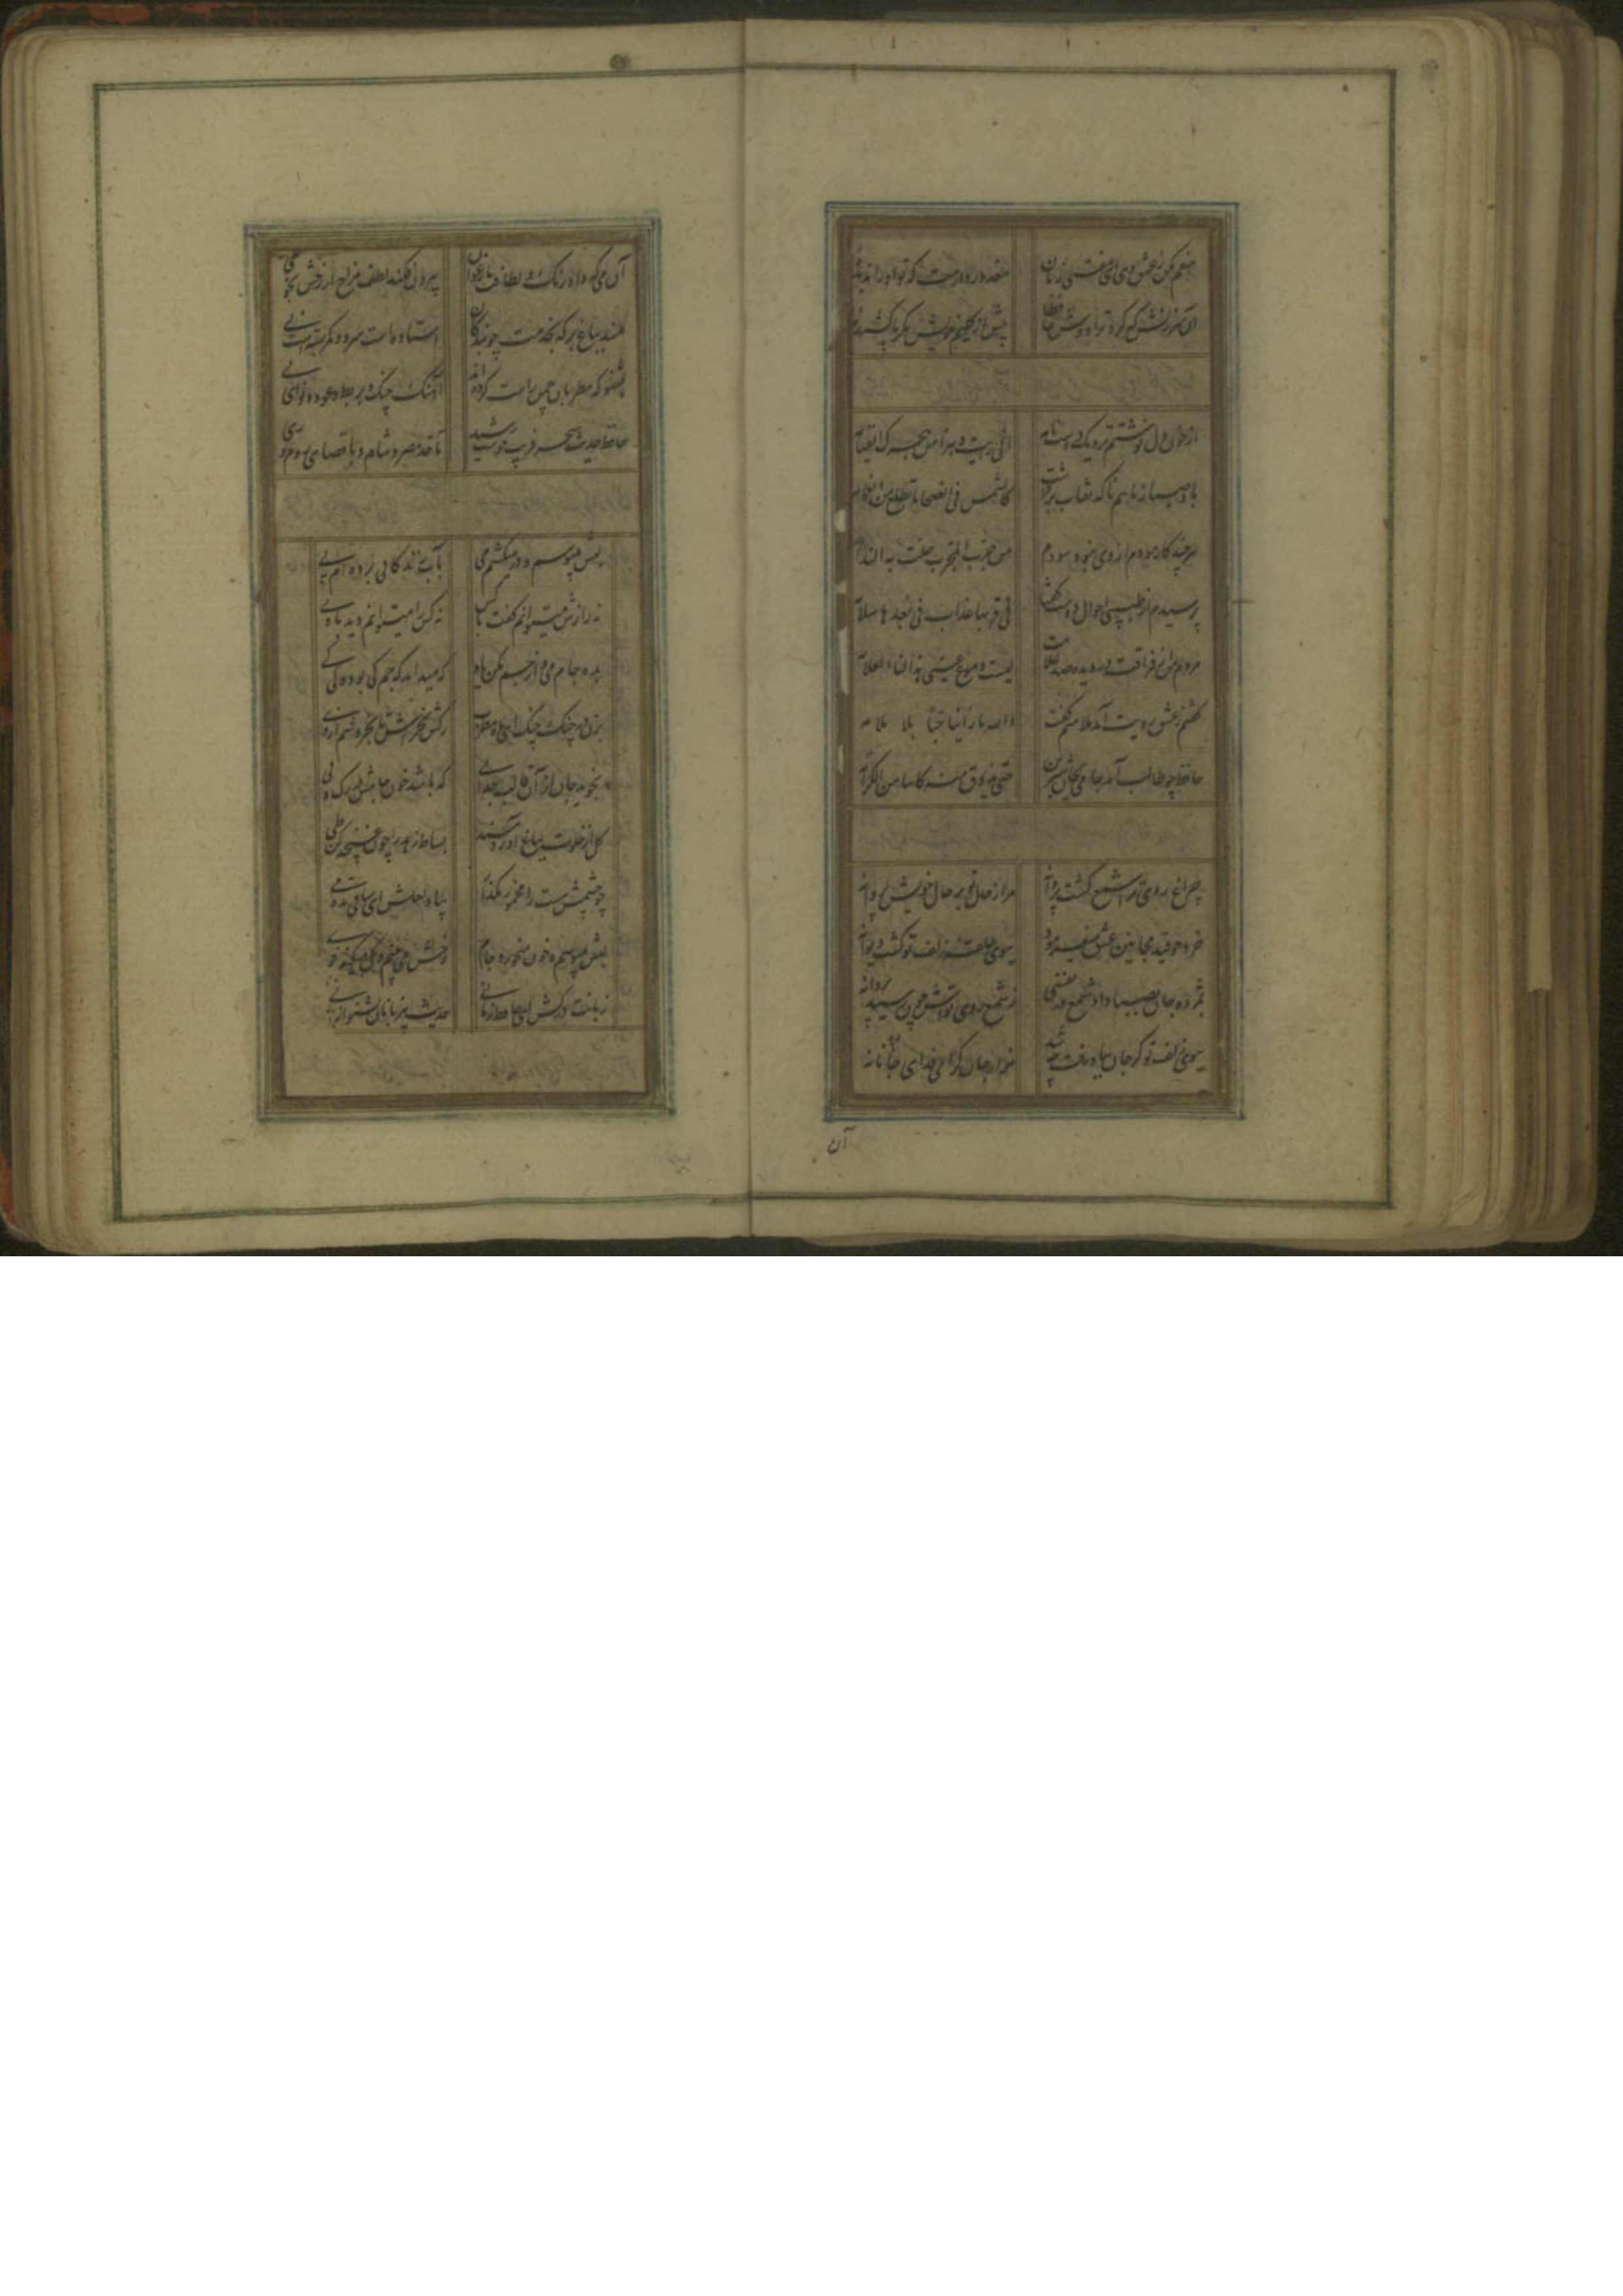 منعم مکن ز عشق وی ای مفتی زمان
معذور دارمت که تو او را ندیده
آن سرزنش که کرد ترا دوست حافظا
پیش از گلیم خویش مگر پا کشیده
از خون دل نوشتم نزدیک دوست نامه
انی رایت دهرا من هجرک القیامه
باد صبا ز ماهم ناگه نقاب برداشت
کالشمس فی الضحاها تطلع من الغمامه
هر چند کازمودم از وی نبود سودم
من جرب المجرب حلت به الندامه
پرسیدم از طبیبی احوال دوست گفتا
فی قربها عذاب فی بعدها سلامه
دارم من از فراقت در دیده صد علامت
لیست دموع عینی هذا لنا العلامه
گفتم ز عشق رویت آمد ملامتم گفت
والله ما راینا حبا بلا ملامه
حافظ چو طالب آمد جامی بجان شیرین
حتی یذوق منه کاسا من الکرامه
چراغ روی ترا شمع گشت پروانه
مرا ز حال تو بر حال خویش پروا نه
خرد چو قید مجانین عشق میفرمود
ببوی حلقه زلف تو گشت دیوانه
بمژده جان بصبا داد شمع در نفسی
ز شمع روی تواش چون رسید پروانه
ببوی زلف تو گر جان بباد رفت چه شد
هزار جان گرامی فدای جانانه
آن
آن می که داد رنگ و لطافت بارغوان
بیرون فکند لطف مزاج از رخش بخوی
مسند بباغ بر که بخدمت چو بندگان
استاده است سرو و کمر بسته است نی
بشنو که مطربان چمن راست کرده‌اند
آهنگ چنگ و بربط و عود و نوای نی
حافظ حدیث سحر فریب خوشت رسید
تا حد مصر و شام و باقصای روم و ری
لبش میبوسم و در میکشم می
بآب زندگانی برده‌ام پی
نه رازش میتوانم گفت با کس
نه کس را میتوانم دید با وی
بده جام می و از جم مکن یاد
که میداند که جم کی بود و کی کی
بزن در چنگ چنگ ای ماه مطرب
رگش بخراش تا بخروشم از وی
نجوید جان از آن قالب جدایی
که باشد خون جامش در رگ و پی
گل از خلوت بباغ آورد مسند
بساط زهد را چون غنچه کن طی
چو چشمش مست را مخمور مگذار
بیاد لعلش ای ساقی بده می
لبش میبوسد و خون میخورد جام
رخش می‌بینم و گل میکند خوی
زبانت درکش ای حافظ زمانی
حدیث بیزبانان بشنو از نی